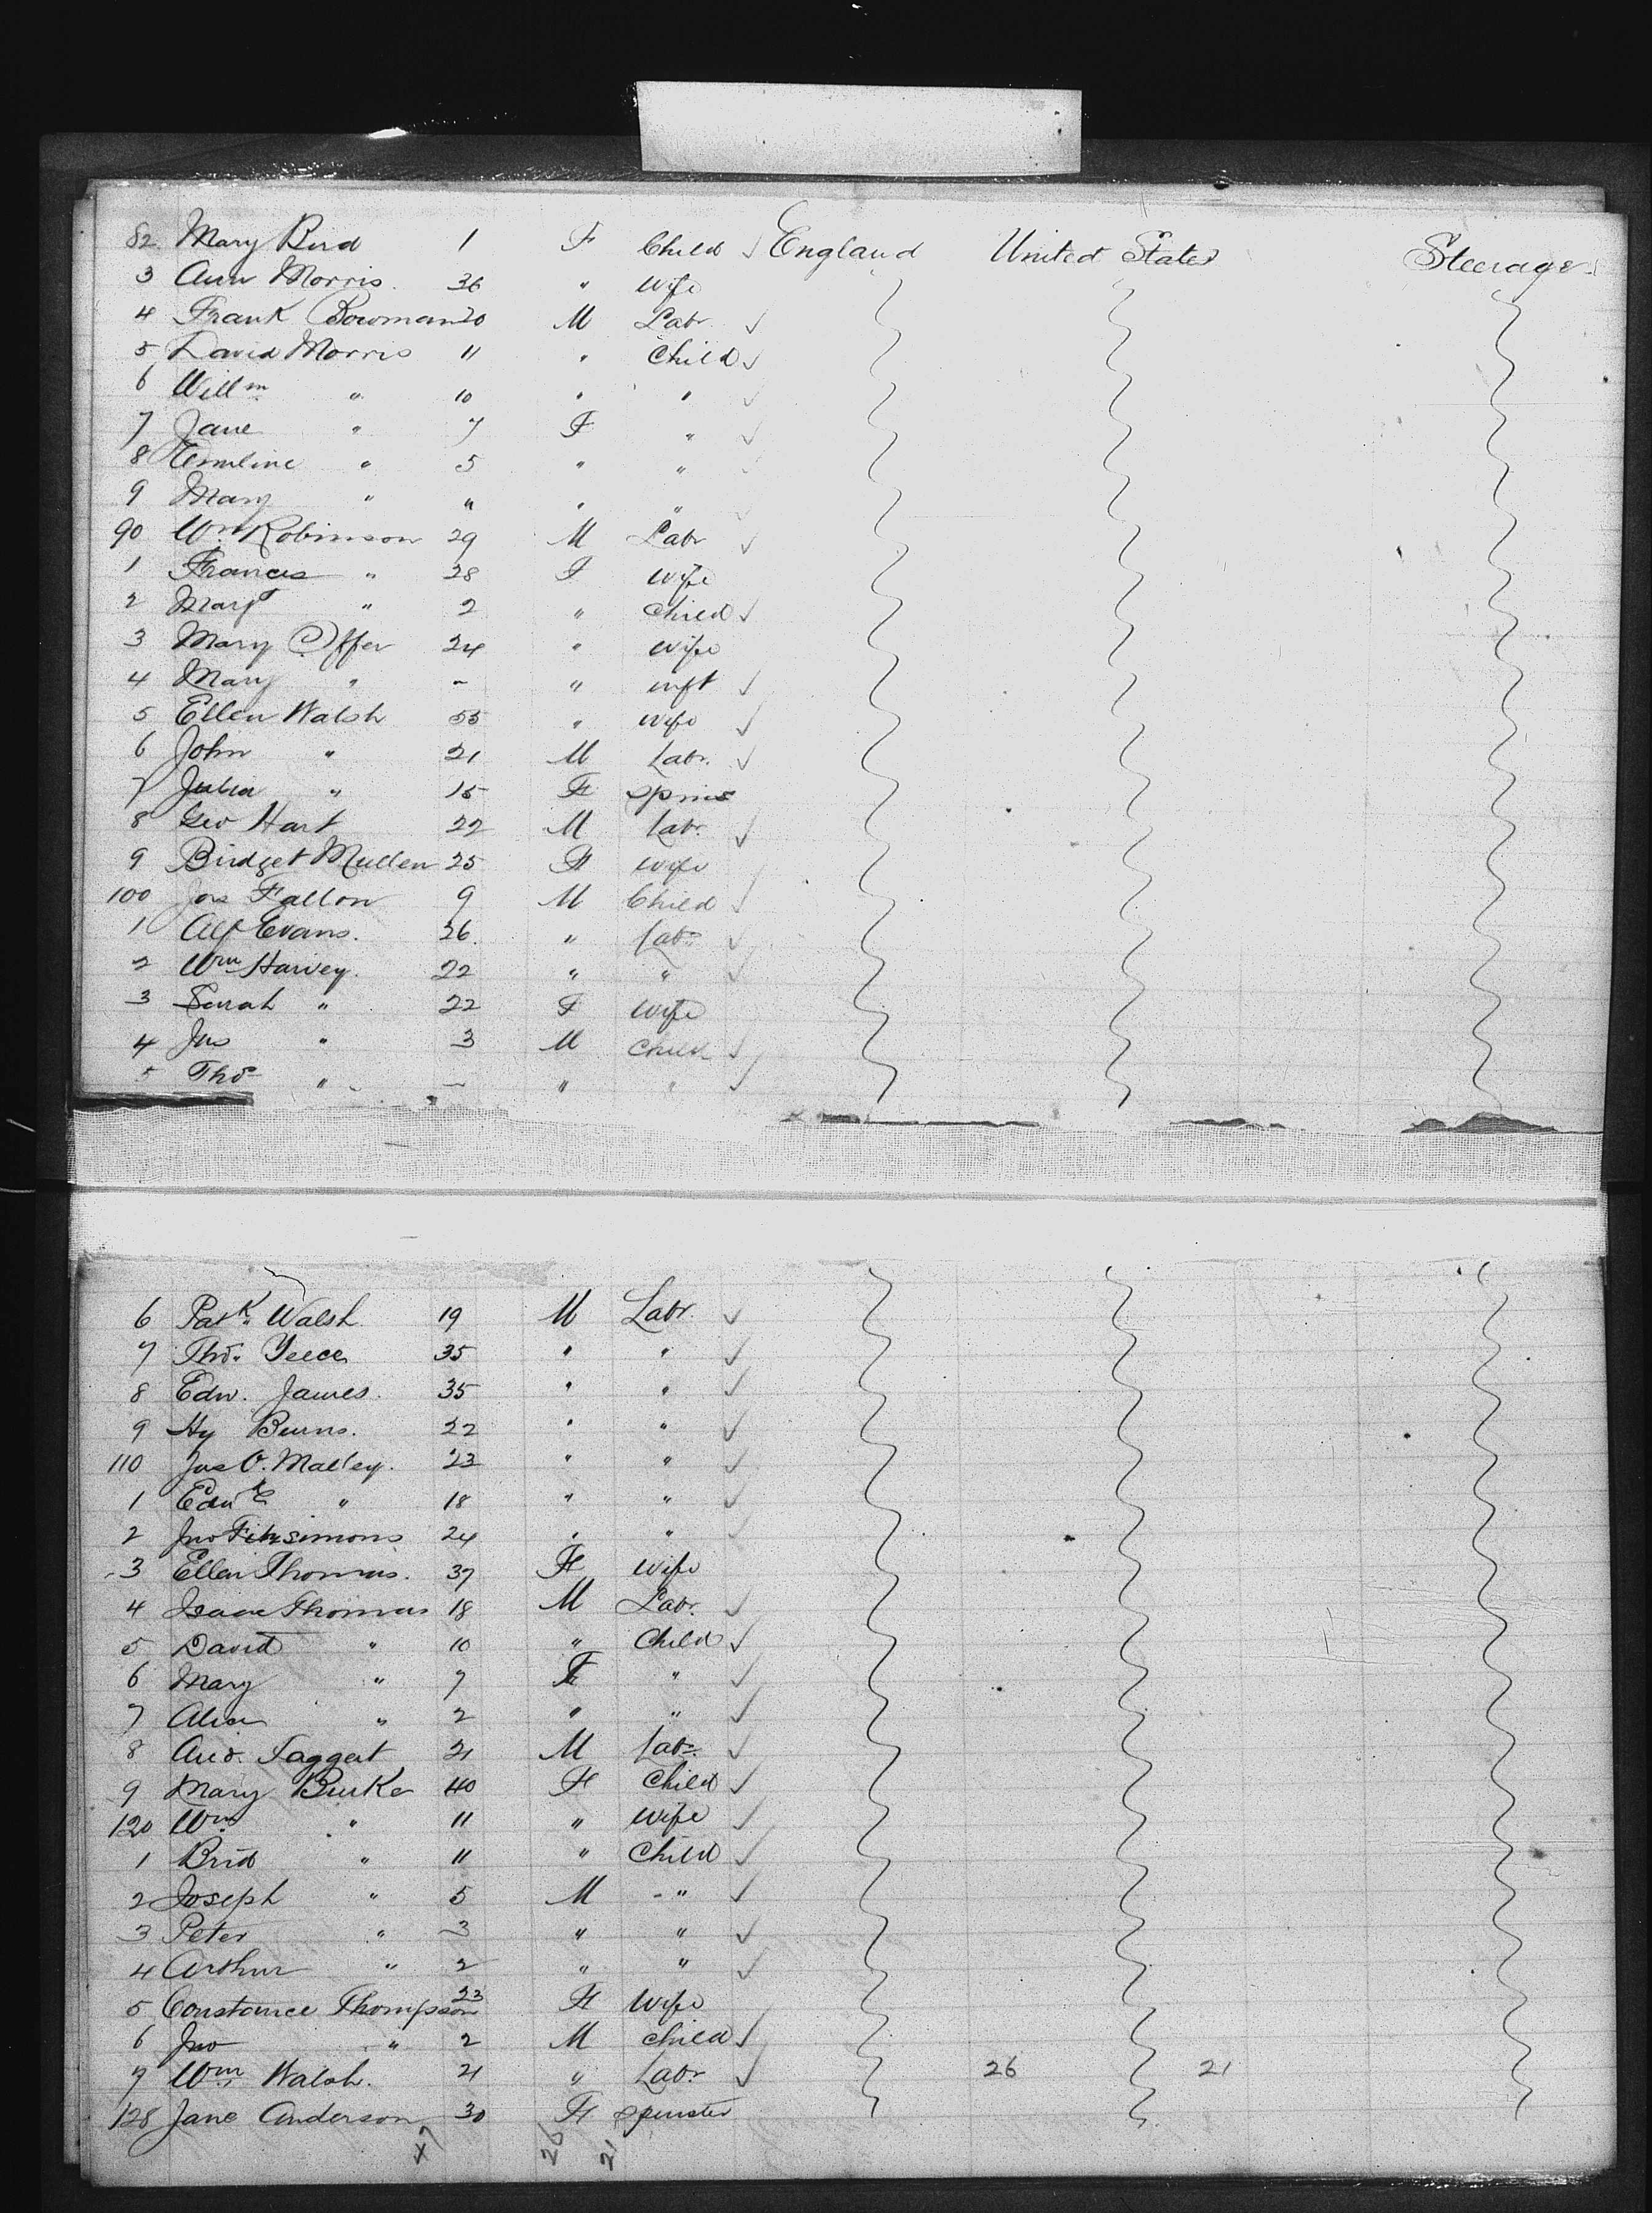 82 Mary Bird 1 F Child ✓ England United States Steerage
3 Ann Morris. 36 " Wife
4 Frank Bowman 20 M Labr. ✓
5 David Morris 11 " Child ✓
6 Willm " 10 " " ✓
7 Jane " 7 F " ✓
8 Emeline " 5 " " ✓
9 Mary " " " " ✓
90 Wm Robinson 29 M Labr ✓
1 Frances " 28 F Wife
2 Margt " 2 " Child ✓
3 Mary Offer 24 " Wife
4 Mary " - " inft ✓
5 Ellen Walsh 55 " Wife ✓
6 John " 21 M Labr. ✓
7 Julia " 15 F Spins
8 Geo Hart 22 M Labr. ✓
9 Bridget Mullen 25 F Wife
100 Jas Fallon 9 M Child ✓
1 Alf Evans. 26. " Labr ✓
2 Wm Harvey. 22 " " ✓
3 Sarah " 22 F Wife
4 Jno " 3 M Child ✓
5 Thos " - " " ✓
6 Patk Walsh 19 M Labr. ✓
7 Thos. Yeece 35 " " ✓
8 Edw. James. 35 " " ✓
9 Hy Burns. 22 " " ✓
110 Jas O. Malley. 23 " " ✓
1 Edwd " 18 " " ✓
2 Jno Fitzsimons 24 " " ✓
3 Ellen Thomas. 37 F Wife
4 Isaac Thomas 18 M Labr. ✓
5 David " 10 " Child ✓
6 Mary " 7 F " ✓
7 Alice " 2 " " ✓
8 And. Taggert 21 M Labr. ✓
9 Mary Burke 40 F Child ✓
120 Wm " 11 " Wife ✓
1 Brid " 11 " Child ✓
2 Joseph " 5 M - " ✓
3 Peter " 3 " " ✓
4 Arthur " 2 " " ✓
5 Constance Thompson 23 F Wife
6 Jno " 2 M Child ✓
7 Wm Walsh. 21 " Labr ✓ 26 21
128 Jane Anderson 30 F Spinster
26 21